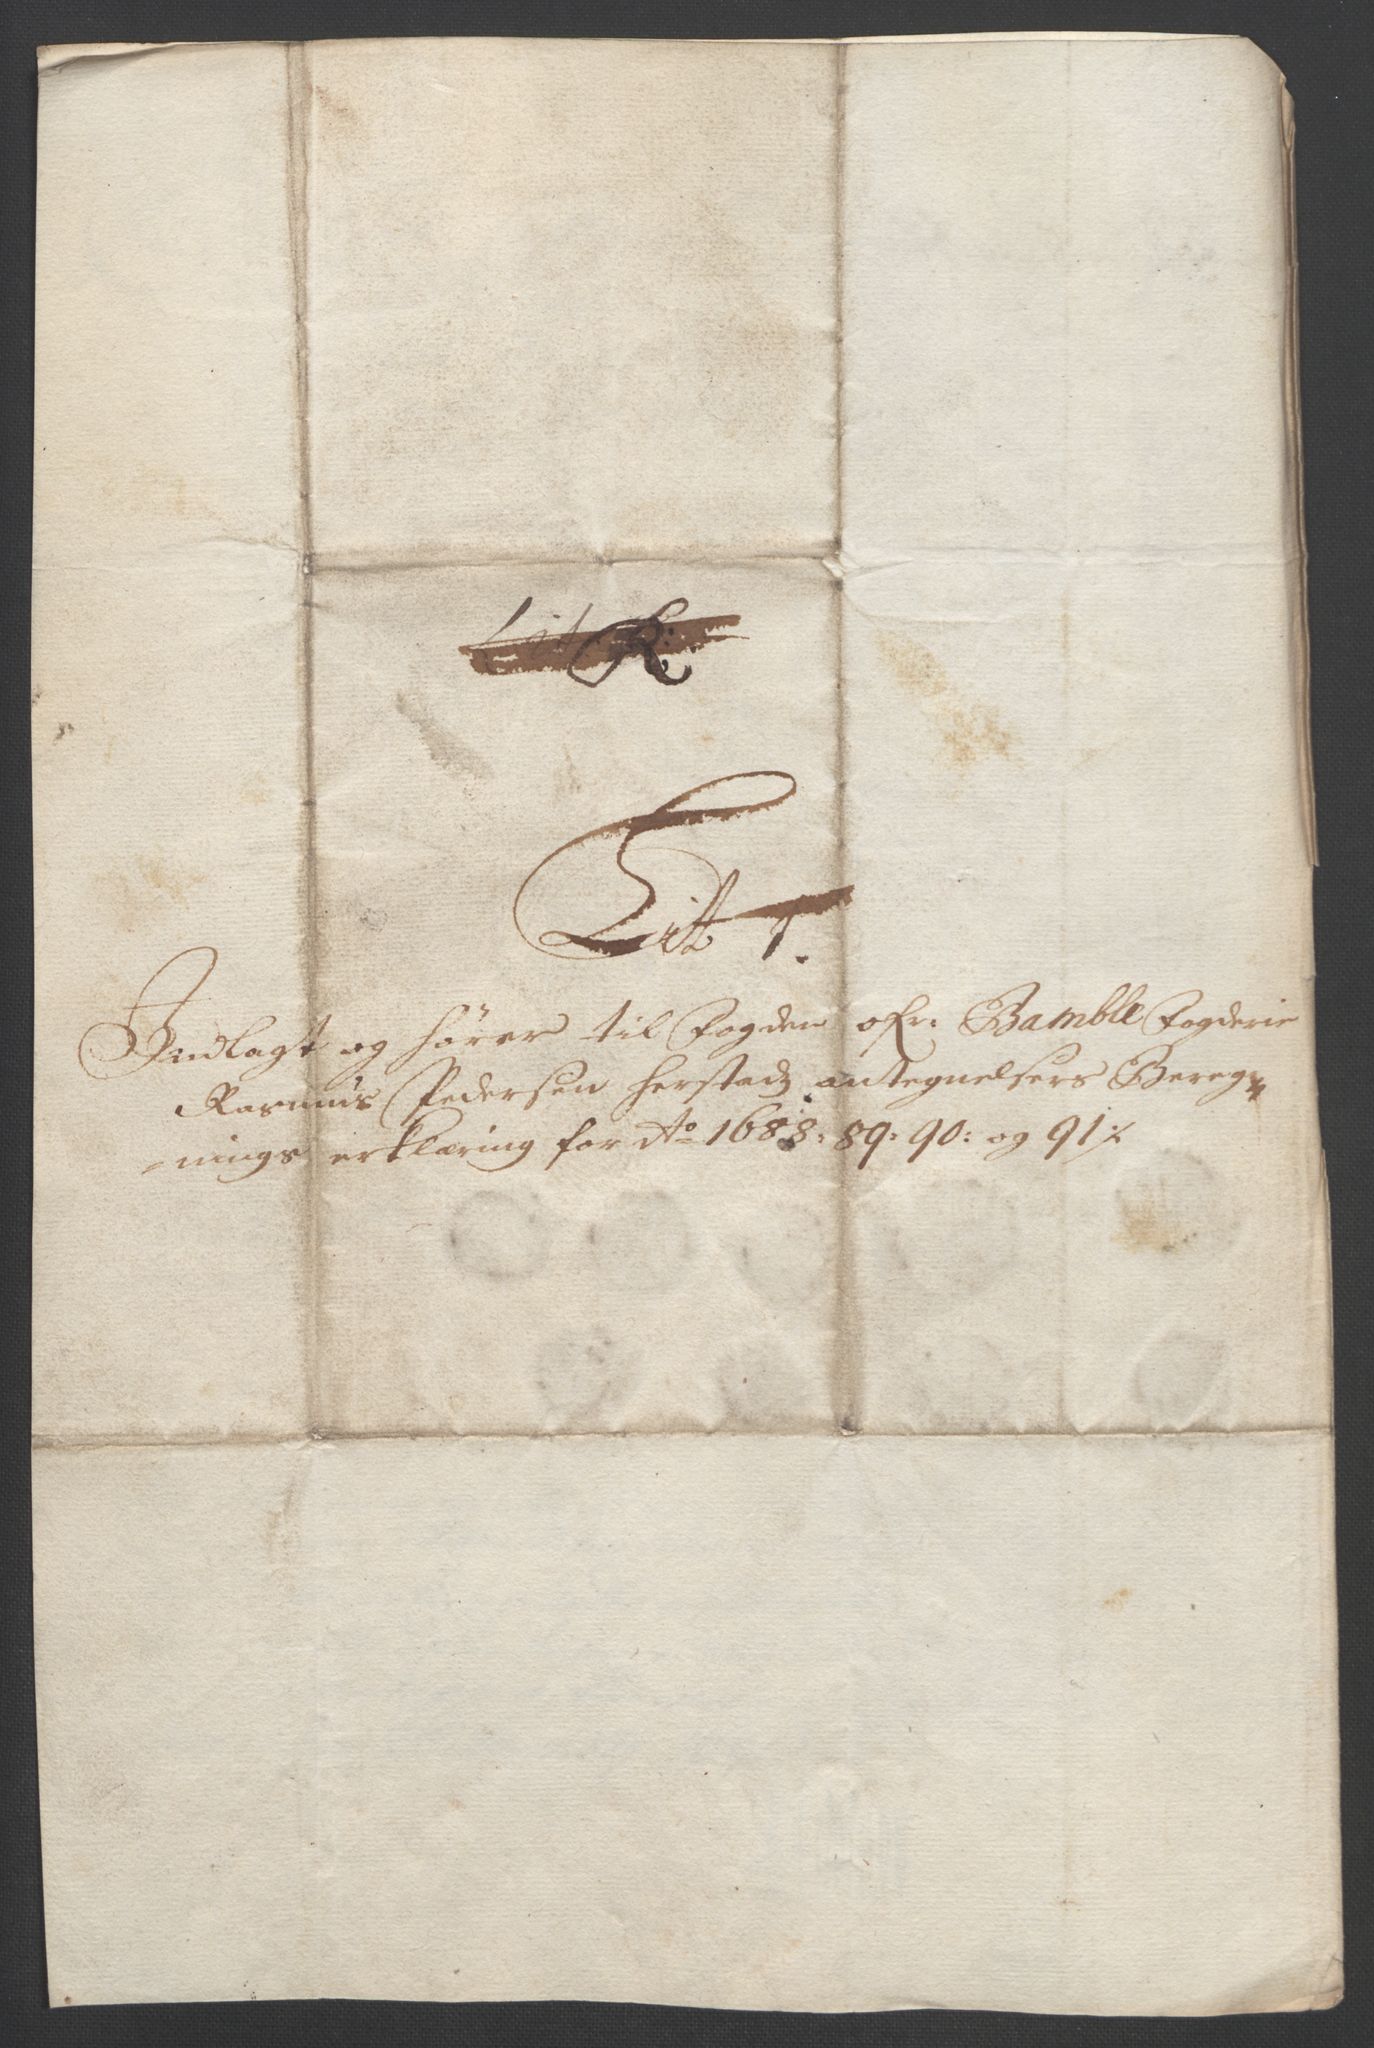 Lit R:
Litt 1.
Indlagt og hører til Fogden ofr: Bamble Fogderie
Rasmus Pedersen herstadz antegnelsers Bereg-
-nings erklæring for Ao 1688: 89: 90: og 91 ⁒